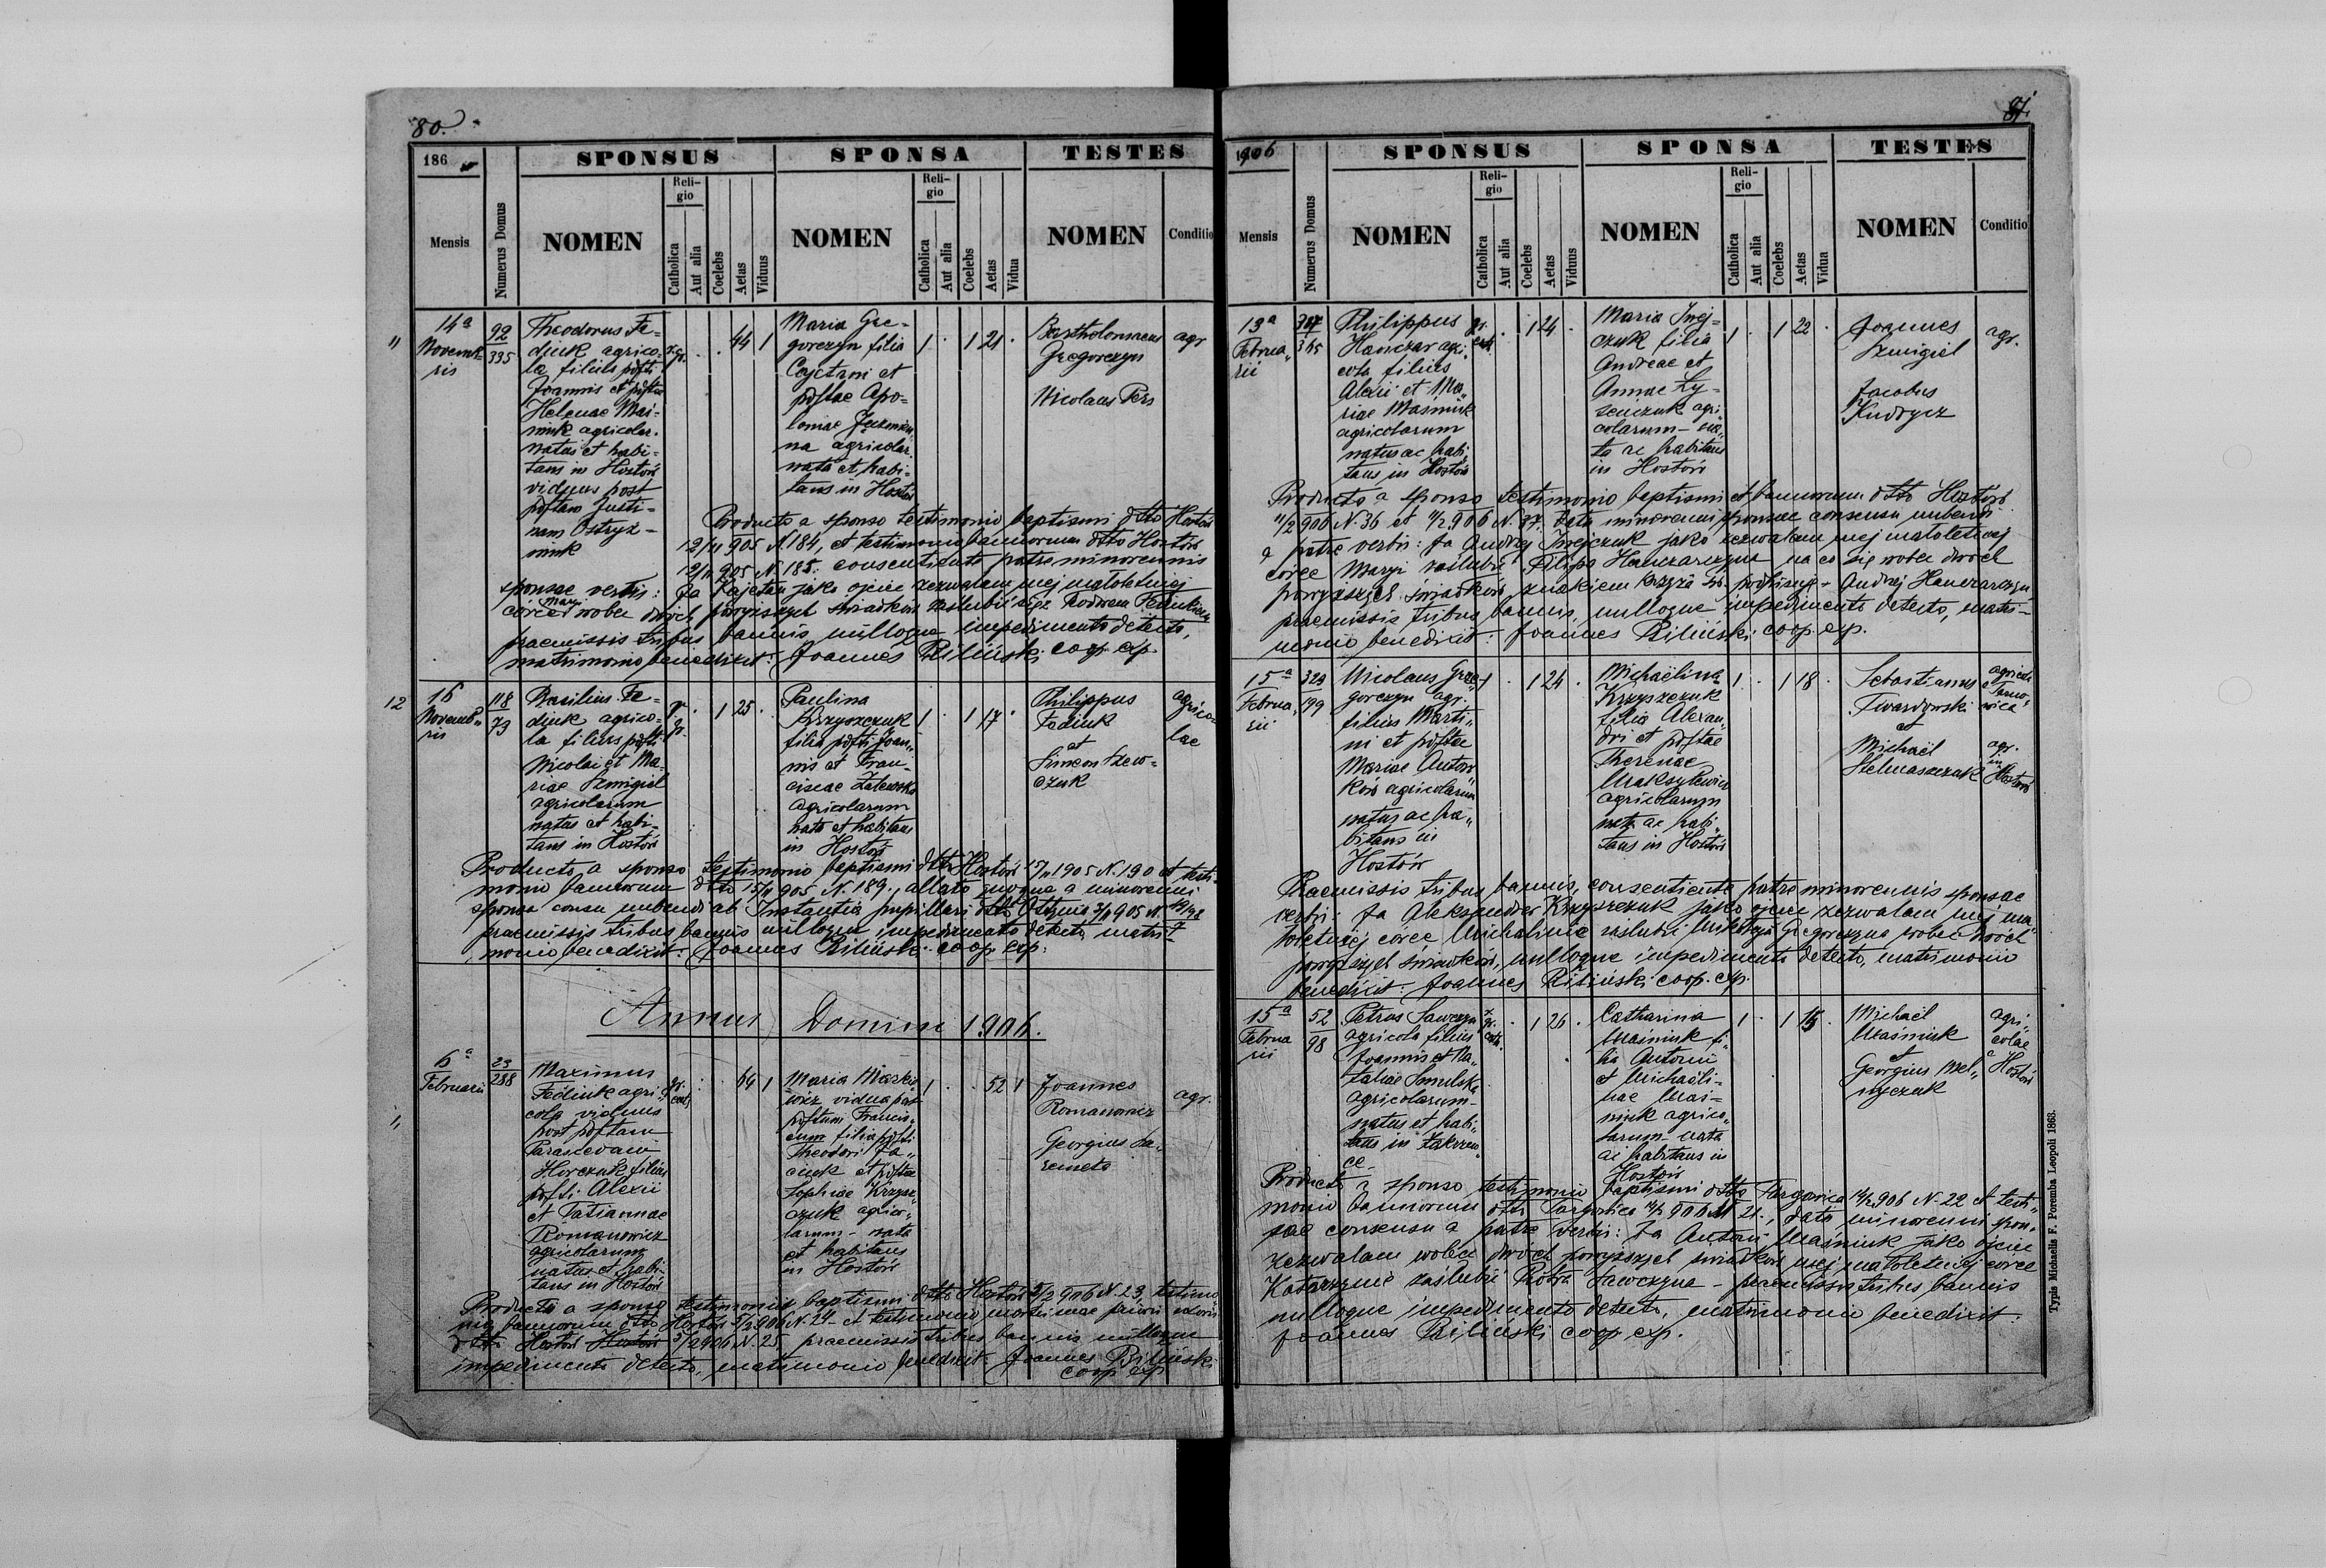 80.
186
SPONSUS
SPONSA
TESTES
Mensis
Numerus Domus
NOMEN
Religio
Catholica
Aut alia
Coelebs
Aetas
Viduus
NOMEN
Religio
Catholica
Aut alia
Coelebs
Aetas
Vidua
NOMEN
Conditio
11
14a
Novemb-
ris
92
335
Theodorus Fe-
djuk agrico-
la filius pdfti
Joannis et pdftae
Helenae Maś-
niuk agricolar.
natus et habi-
tans in Hostów
viduus post
pdftam Justi-
nam Ostryż-
niuk
44 1
Maria Gre-
gorczyn filia
Cajetani et
pdftae Apo-
loniae
na agricolar.
nata et habi-
tans in Hostów
1 . 1 21 .
Bartholomaeus
Gregorczyn
Nicolaus Pers
agr
Producto a sponso testimonio baptismi dtto Hostów
12/11 905 N. 184, et testimonio bannorum dtto Hostów
12/11 905 N. 185. consentiente patre minorennis
sponsae verbis: Ja Kajetan jako ojciec zezwalam mej małoletniej
córce Maryi wobec dwóch powyższych świadków zaślubić się z Teodorem Fediukiem
praemissis tribus bannis nulloque impedimento detecto,
matrimonio benedixit: Joannes Biliński coop. exp.
12
16
Novemb-
ris
118
73
Basilius Fe-
djuk agrico-
la filius pdfti
Nicolai et Ma-
riae Szmigiel
agricolarum
natus et habi-
tans in Hostów
1 25 .
Paulina
Krzyszczuk
filia pdfti Joan-
nis et Fran-
ciscae Zalewska
agricolarum
nata et habitans
in Hostów
1 . 1 17 .
Philippus
Fodiuk
et
Simeon Szew-
czuk
agrico-
lae
Producto a sponso testimonio baptismi dtto Hostów 15/11 1905 N. 190 et testi-
monio bannorum dtto 15/11 905 N. 189., allato quoque a minorenni
sponsa consensu nubendi ab Instantia pupillari dtto Ottynia 3/11 905 N.
praemissis tribus bannis nulloque impedimento detecto matri-
monio benedixit: Joannes Biliński coop. exp:
Annus Domini 1906.
1,
6a
Februarii
23
288
Maximus
Fediuk agri-
cola viduus
post pdftam
Parascevam
Horczuk filius
pdfti Alexii
et Tatiannae
Romanowicz
agricolarum
natus et habi-
tans in Hostów
64 1
Maria Maśke-
wicz vidua post
pdftum Francis-
cum filia pdfti
Theodori Ja-
ciuk et pdftae
Sophiae Krzysz-
czuk agrico-
larum - nata
et habitans
in Hostów
1 . . 52 1
Joannes
Romanowicz
Georgius Ja-
remeta
agr.
Producto a sponso testimonio baptismi dtto Hostów 5/2 906 N. 23, testimo
nio bannorum dtto Hostów 5/2 906 N. 24 - et testimonio mortis prioris uxoris
dtto Hostów Hostów 5/2 906 N. 25, praemissis tribus bannis nulloque
impedimento detecto, matrimonio benedixit: Joannes Biliński
coop exp
81.
1906
SPONSUS
SPONSA
TESTES
Mensis
Numerus Domus
NOMEN
Religio
Catholica
Aut alia
Coelebs
Aetas
Viduus
NOMEN
Religio
Catholica
Aut alia
Coelebs
Aetas
Vidua
NOMEN
Conditio
13a
Februa-
rii
345
Philippus
Hanczar agri-
cola filius
Alexii et Ma-
riae Maśniuk
agricolarum
natus ac habi-
tans in Hostów
gr.
cath.
. 1 24 .
Maria Iwej-
czuk filia
Andreae et
Annae Ły-
seńczuk agri-
colarum - na-
ta ac habitans
in Hostów
1 . 1 22 .
Joannes
Szmigiel
Jacobus
Kudrycz
agr.
Producto a sponso testimonio baptismi et bannorum dtto Hostów
11/2 906 N. 36 et 11/2 906 N. 37. data minorenni sponsae consensu nubendi
a patre verbis: Ja Andrzej Iwejczuk jako zezwalam mej małoletniej
córce Maryi zaślubić Filipa Hanczarczyna na co się wobec dwóch
powyższych świadków znakiem krzyża św. podpisuję - Andrzej Hanczarczyn
praemissis tribus bannis, nulloque impedimento detecto, matri-
monio benedixit: Joannes Biliński coop. exp.
15a
Februa-
rii
329
199
Nicolaus Gre-
gorczyn agr.
filius Marti-
ni et pdftae
Mariae Anton
ków agricolarum
natus ac ha-
bitans in
Hostów
1 . 1 24 .
Michaëlina
Krzyszczuk
filia Alexan-
dri et pdftae
Theresiae
Maksylewicz
agricolarum
nata ac habi-
tans in Hostów
1 . 1 18 .
Sebastianus
Twardowski
et
Michaël
Stelmaszczuk
agricola
e Tarno-
wica
agr.
in
Hostów
Praemissis tribus bannis, consentiente patre minorennis sponsae
verbis: Ja Aleksander Krzyszczuk jako ojciec zezwalam mej ma-
łoletniej córce Michalinie zaślubić Mikołaja Gregorczyna wobec dwóch
powyższych świadków, nulloque impedimento detecto, matrimonio
benedixit: Joannes Biliński coop. exp.
15a
Februa
rii
52
98
Petrus Sawczyn
agricola filius
Joannis et Na-
taliae Smulska
agricolarum -
natus et habi-
tans in Zakrzew
ce -
gr.
cath.
. 1 26 .
Catharina
Maśniuk fi-
lia Antonii
et Michaëli-
nae Maś-
niuk agrico-
larum - nata
ac habitans in
Hostów
1 . 1 15 .
Michaël
Maśniuk
et
Georgius Mel-
nyczuk
agri-
colae
e
Hostów
Producto a sponso testimonio baptismi dtto Targowica 14/2 906 N. 22 et testi-
monio bannorum dtto Targowica 14/2 906 N 21., dato minorenni spon-
sae consensu a patre verbis: Ja Antoni Maśniuk jako ojciec
zezwalam wobec dwóch powyższych świadków mej małoletniej córce
Katarzynie zaślubić Piotra Sawczyna - praemissis tribus bannis
nulloque impedimento detecto, matrimonio benedixit.
Joannes Biliński coop. exp.
Typis Michaelis F. Poremba Leopoli 1863.